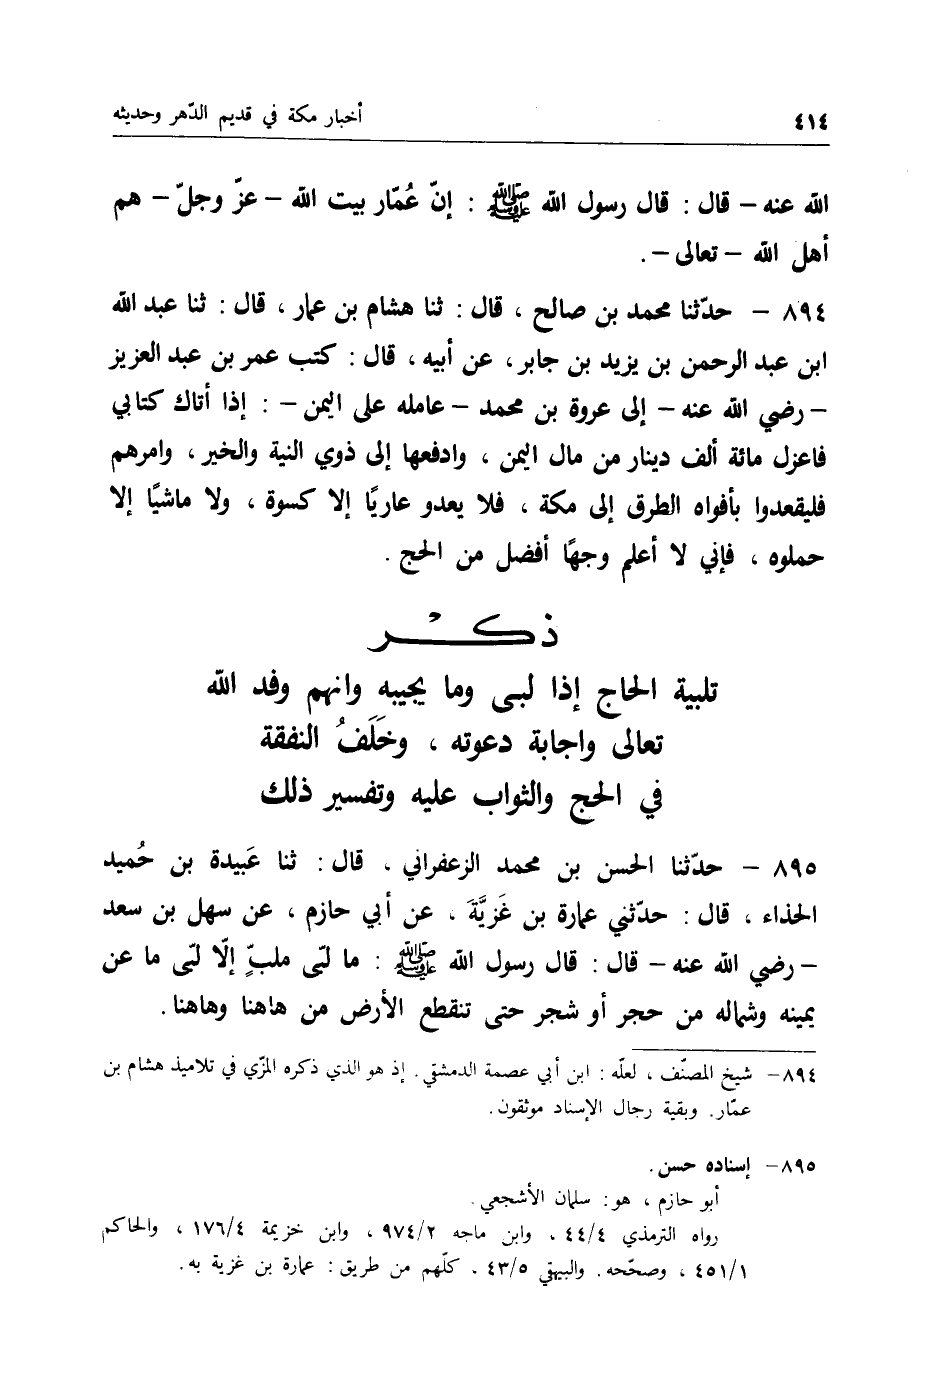 ٤١٤ أخبار مكة في قديم الدّهر وحديثه
الله عنه – قال : قال رسول الله ﷺ : إنّ عُمّار بيت الله – عزّ وجلّ – هم
أهل الله – تعالى – .
٨٩٤ – حدّثنا محمد بن صالح ، قال : ثنا هشام بن عمار ، قال : ثنا عبد الله
ابن عبد الرحمن بن يزيد بن جابر ، عن أبيه ، قال : كتب عمر بن عبد العزيز
– رضي الله عنه – إلى عروة بن محمد – عامله على اليمن – : إذا أتاك كتابي
فاعزل مائة ألف دينار من مال اليمن ، وادفعها إلى ذوي النية والخير ، وامرهم
فليقعدوا بأفواه الطرق إلى مكة ، فلا يعدو عاريًا إلا كسوة ، ولا ماشيًا إلا
حملوه ، فإني لا أعلم وجهًا أفضل من الحج .
ذكْر
تلبية الحاج إذا لبى وما يجيبه وانهم وفد الله
تعالى واجابة دعوته ، وخَلَفُ النفقة
في الحج والثواب عليه وتفسير ذلك
٨٩٥ – حدّثنا الحسن بن محمد الزعفراني ، قال : ثنا عَبيدة بن حُميد
الحذاء ، قال : حدّثني عمارة بن غَزِيَّة ، عن أبي حازم ، عن سهل بن سعد
– رضي الله عنه – قال : قال رسول الله ﷺ : ما لبّى ملبٍّ إلّا لبّى ما عن
يمينه وشماله من حجر أو شجر حتى تنقطع الأرض من هاهنا وهاهنا .
٨٩٤– شيخ المصنّف ، لعلّه : ابن أبي عصمة الدمشقي . إذ هو الذي ذكره المزّي في تلاميذ هشام بن
عمّار . وبقية رجال الإسناد موثقون .
٨٩٥– إسناده حسن .
أبو حازم ، هو : سلمان الأشجعي .
رواه الترمذي ٤٤/٤ ، وابن ماجه ٩٧٤/٢ ، وابن خزيمة ١٧٦/٤ ، والحاكم
٤٥١/١ ، وصحّحه . والبيهقي ٤٣/٥ ، كلّهم من طريق : عمارة بن غزية به .